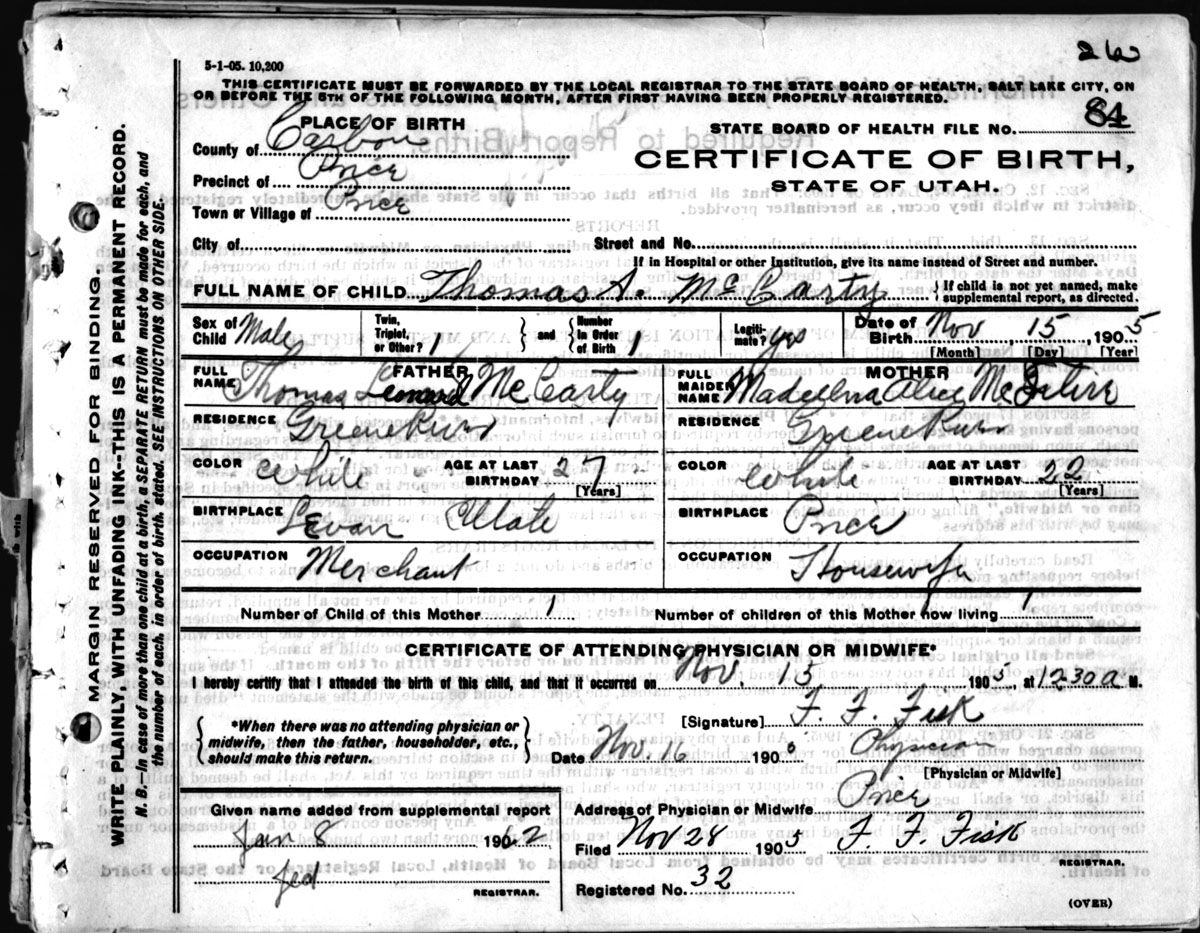 26
5-1-05. 10,200
THIS CERTIFICATE MUST BE FORWARDED BY THE LOCAL REGISTRAR TO THE STATE BOARD OF HEALTH, SALT LAKE CITY, ON
OR BEFORE THE 5TH OF THE FOLLOWING MONTH, AFTER FIRST HAVING BEEN PROPERLY REGISTERED.
PLACE OF BIRTH
STATE BOARD OF HEALTH FILE NO. 84
County of Carbon
CERTIFICATE OF BIRTH,
Precinct of Price
STATE OF UTAH.
Town or Village of Price
City of
Street and No.
If in Hospital or other Institution, give its name instead of Street and number.
FULL NAME OF CHILD Thomas A. McCarty
If child is not yet named, make supplemental report, as directed.
Sex of Child Male
Twin, Triplet, or Other? 1
and
Number in Order of Birth 1
Legitimate? yes
Date of Birth Nov 15, 1905
[Month] [Day] [Year]
FATHER
FULL NAME Thomas Leonard McCarty
MOTHER
FULL MAIDEN NAME Alice
RESIDENCE Greene River
RESIDENCE Greene River
COLOR White
AGE AT LAST BIRTHDAY 27
[Years]
COLOR White
AGE AT LAST BIRTHDAY 22
[Years]
BIRTHPLACE Levan Utah
BIRTHPLACE Price
OCCUPATION Merchant
OCCUPATION Housewife
Number of Child of this Mother 1
Number of children of this Mother now living 1
CERTIFICATE OF ATTENDING PHYSICIAN OR MIDWIFE*
I hereby certify that I attended the birth of this child, and that it occurred on Nov 15 1905 at 1230 a M.
*When there was no attending physician or midwife, then the father, householder, etc., should make this return.
[Signature] F. F. Fisk
Date Nov. 16 190
Physician
[Physician or Midwife]
Given name added from supplemental report
Jan 8 1962
REGISTRAR.
Address of Physician or Midwife Price
Filed Nov 28 1905 F. F. Fisk
REGISTRAR.
Registered No. 32
(OVER)
MARGIN RESERVED FOR BINDING.
WRITE PLAINLY, WITH UNFADING INK--THIS IS A PERMANENT RECORD.
N. B.—In case of more than one child at a birth, a SEPARATE RETURN must be made for each, and
the number of each, in order of birth stated. SEE INSTRUCTIONS ON OTHER SIDE.